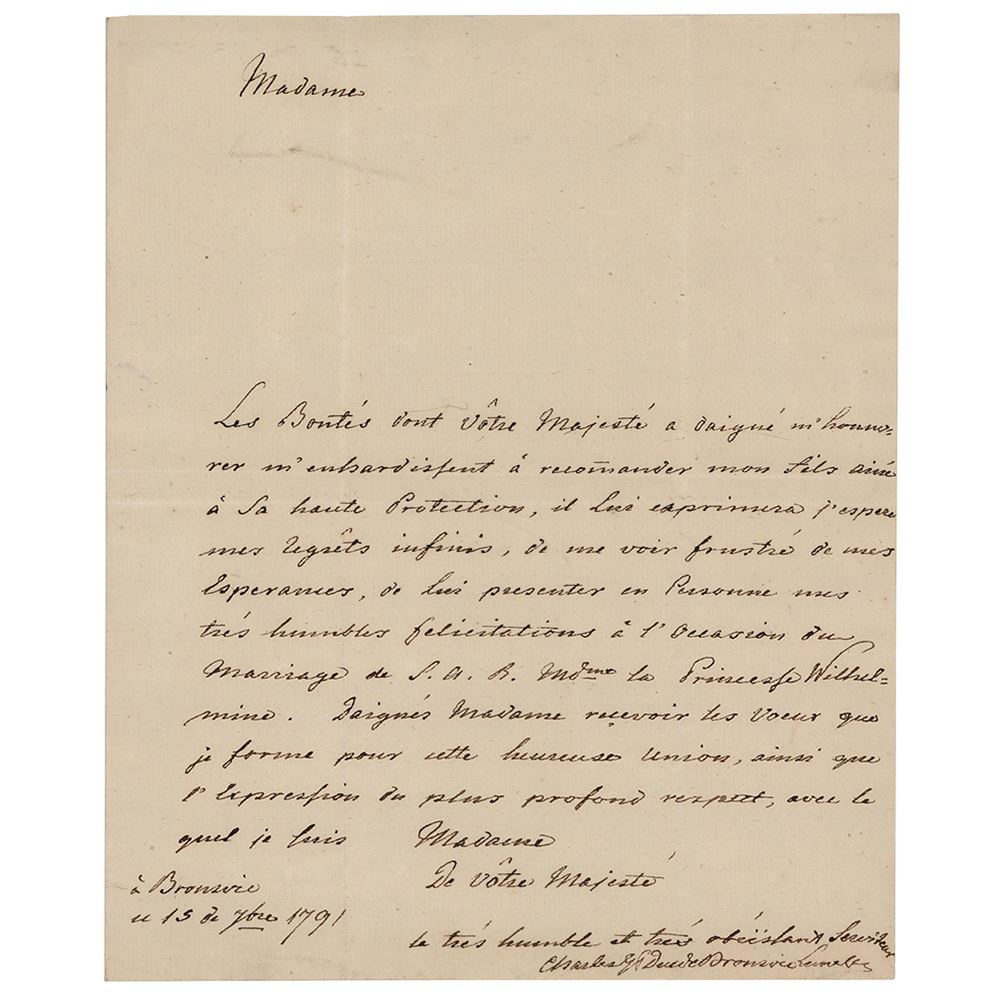 Madame
Les Bontés dont Vôtre Majesté a daigné m'honno=
rer m'enhardissent à recom̄ander mon fils ainé
à Sa haute Protection, il Lui exprimera j'espere
mes regrêts infinis, de me voir frustré de mes
Esperances, de lui presenter en Personne mes
trés humbles felicitations à l'Occasion du
Marriage de S. A. R. Mdme la Princesse Wilhel=
mine. Daignés Madame reçevoir les Voeux que
je forme pour cette heureuse Union, ainsi que
l'Expression du plus profond respect, avec le
quel je suis Madame
De Vôtre Majesté
à Bronsvic
ce 15 de 7bre 1791
le trés humble et trés obéissant Serviteur
Charles G F Duc de Bronsvic Luneb